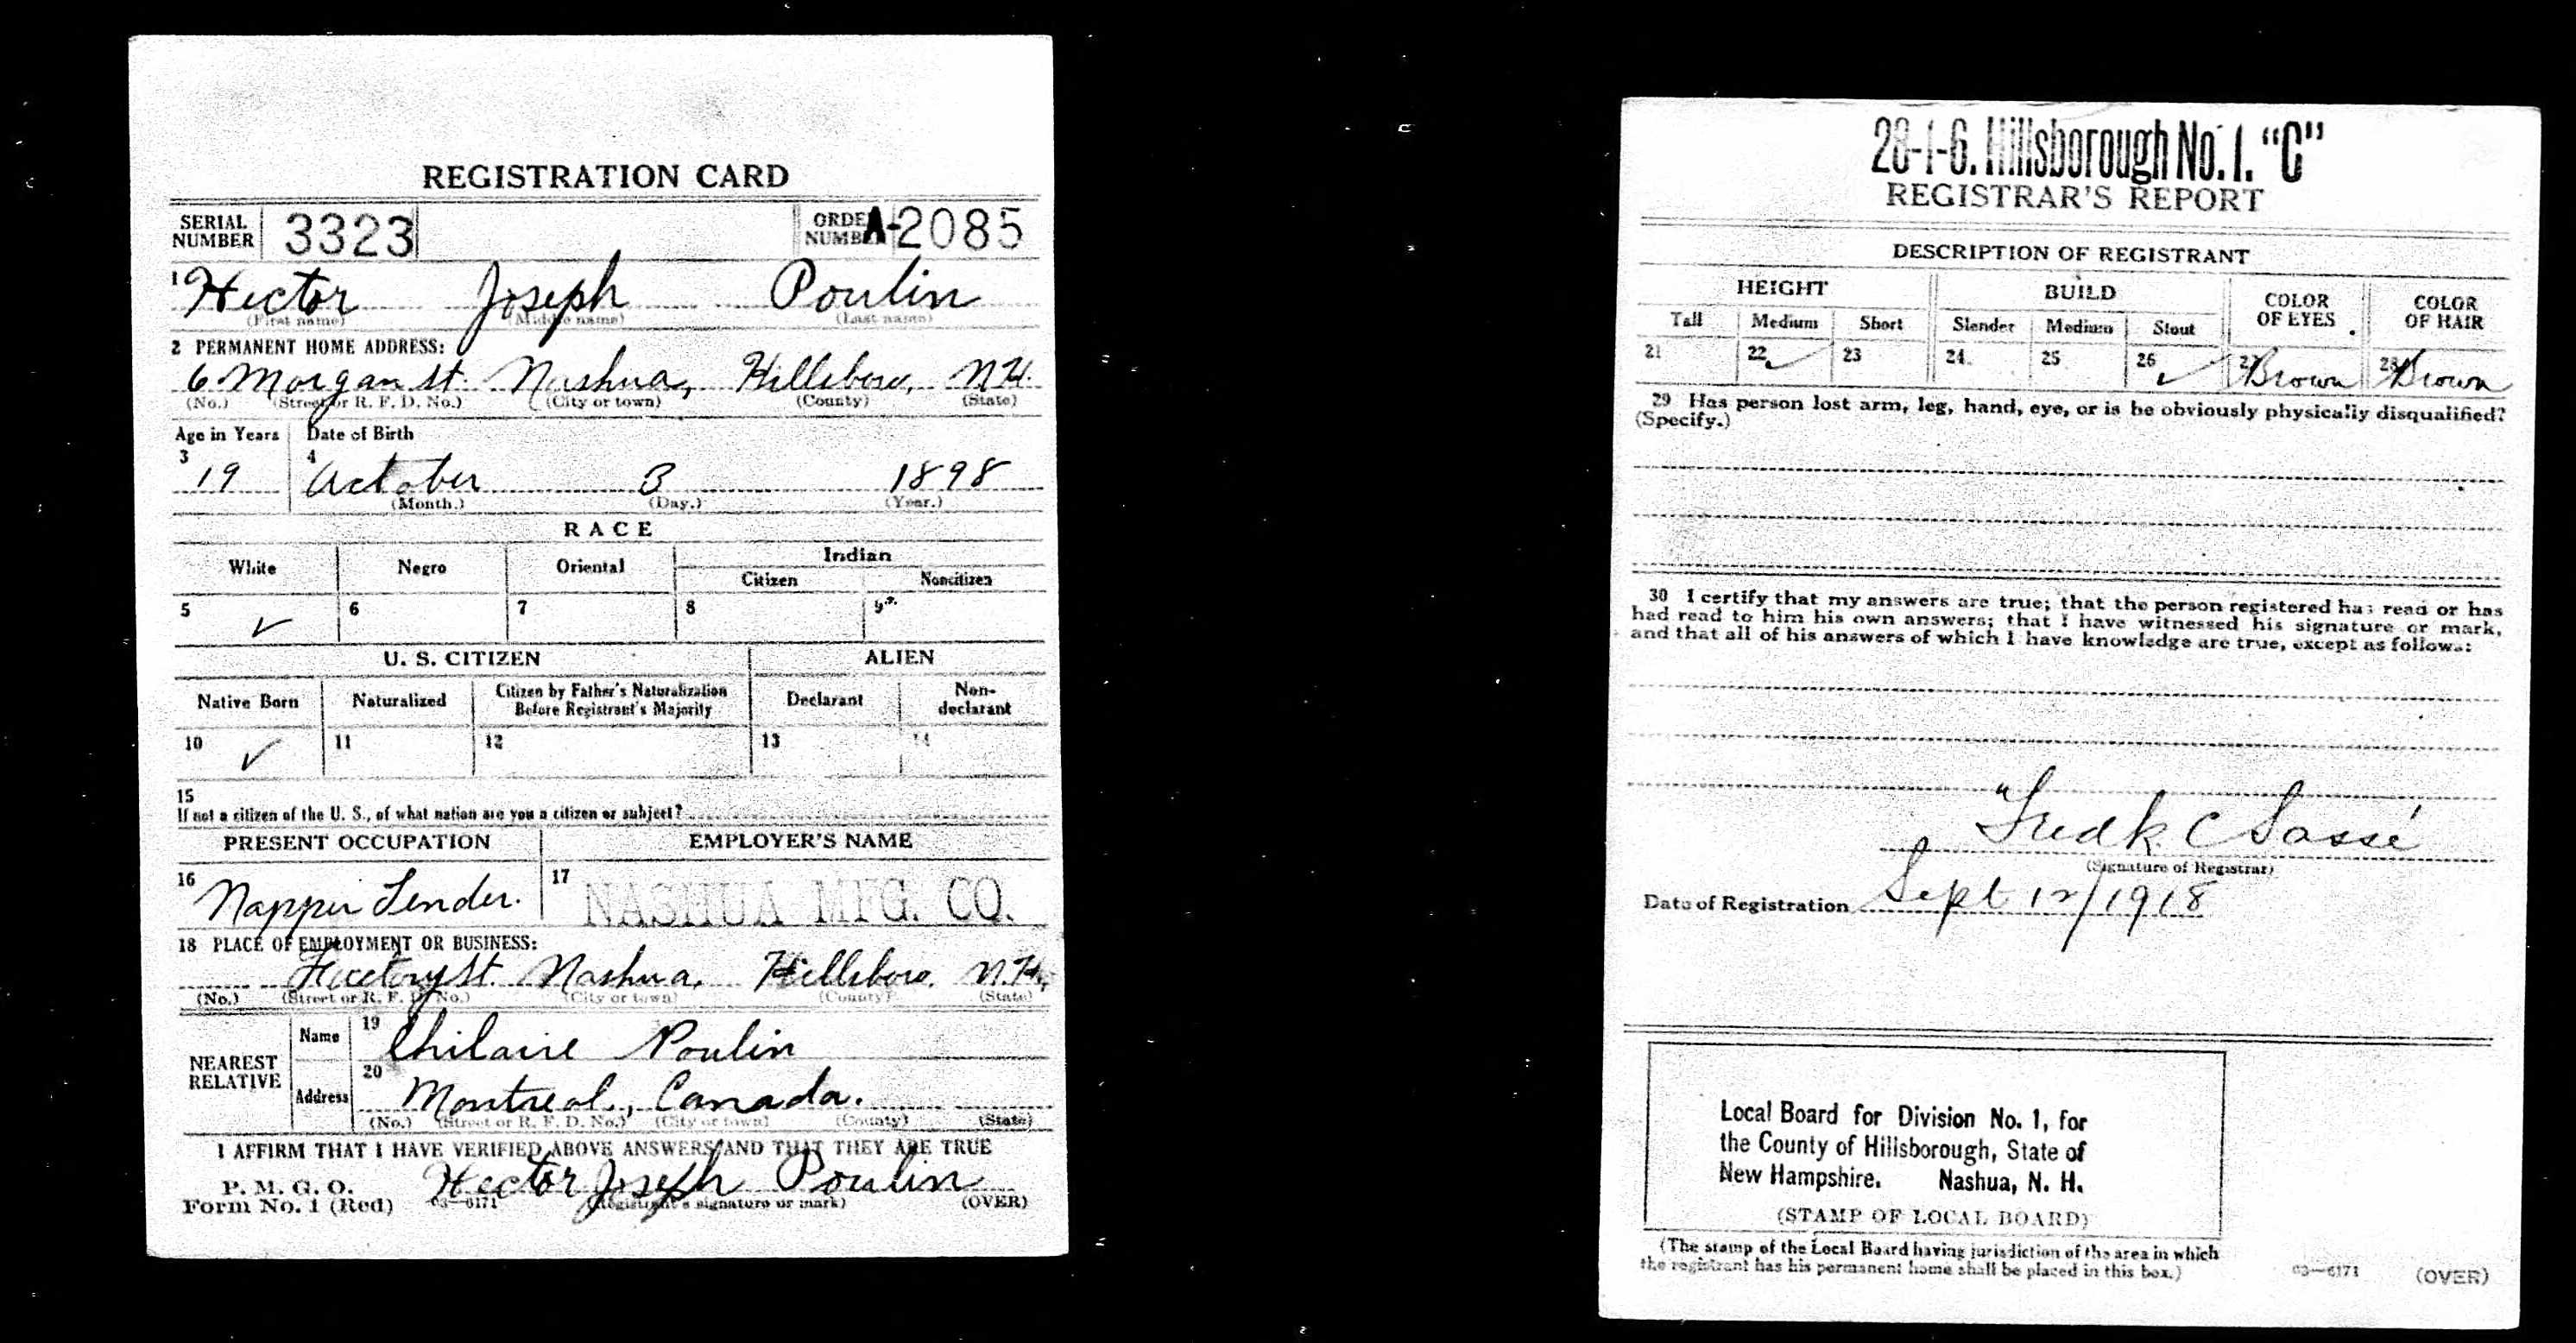 REGISTRATION CARD
SERIAL NUMBER 3323 ORDER NUMBER A-2085
1 Hector Joseph Poulin
(First name) (Middle name) (Last name)
2 PERMANENT HOME ADDRESS:
6 Morgan st. Nashua, Hillsboro, N.H.
(No.) (Street or R. F. D. No.) (City or town) (County) (State)
Age in Years Date of Birth
3 19 4 October 3 1898
(Month.) (Day.) (Year.)
RACE
White Negro Oriental Indian
Citizen Noncitizen
5 ✓ 6 7 8 9
U. S. CITIZEN ALIEN
Native Born Naturalized Citizen by Father's Naturalization Before Registrant's Majority Declarant Non-declarant
10 ✓ 11 12 13 14
15
If not a citizen of the U. S., of what nation are you a citizen or subject?
PRESENT OCCUPATION EMPLOYER'S NAME
16 Napper Tender. 17 NASHUA MFG. CO.
18 PLACE OF EMPLOYMENT OR BUSINESS:
Factory St. Nashua, Hillsboro. N.H.
(No.) (Street or R. F. D. No.) (City or town) (County) (State)
NEAREST RELATIVE
Name 19 Chilaire Poulin
Address 20 Montreal, Canada.
(No.) (Street or R. F. D. No.) (City or town) (County) (State)
I AFFIRM THAT I HAVE VERIFIED ABOVE ANSWERS AND THAT THEY ARE TRUE
P. M. G. O.
Form No. 1 (Red) 03—6171 Hector Joseph Poulin
(Registrant's signature or mark) (OVER)
28-1-6. Hillsborough No. 1. "C"
REGISTRAR'S REPORT
DESCRIPTION OF REGISTRANT
HEIGHT BUILD COLOR OF EYES COLOR OF HAIR
Tall Medium Short Slender Medium Stout
21 22 ✓ 23 24 25 26 ✓ 27 Brown 28 Brown
29 Has person lost arm, leg, hand, eye, or is he obviously physically disqualified?
(Specify.)
30 I certify that my answers are true; that the person registered has read or has
had read to him his own answers; that I have witnessed his signature or mark,
and that all of his answers of which I have knowledge are true, except as follows:
Fredk C Sassé
(Signature of Registrar)
Date of Registration Sept 12/1918
Local Board for Division No. 1, for
the County of Hillsborough, State of
New Hampshire. Nashua, N. H.
(STAMP OF LOCAL BOARD)
(The stamp of the Local Board having jurisdiction of the area in which
the registrant has his permanent home shall be placed in this box.)
03—6171 (OVER)